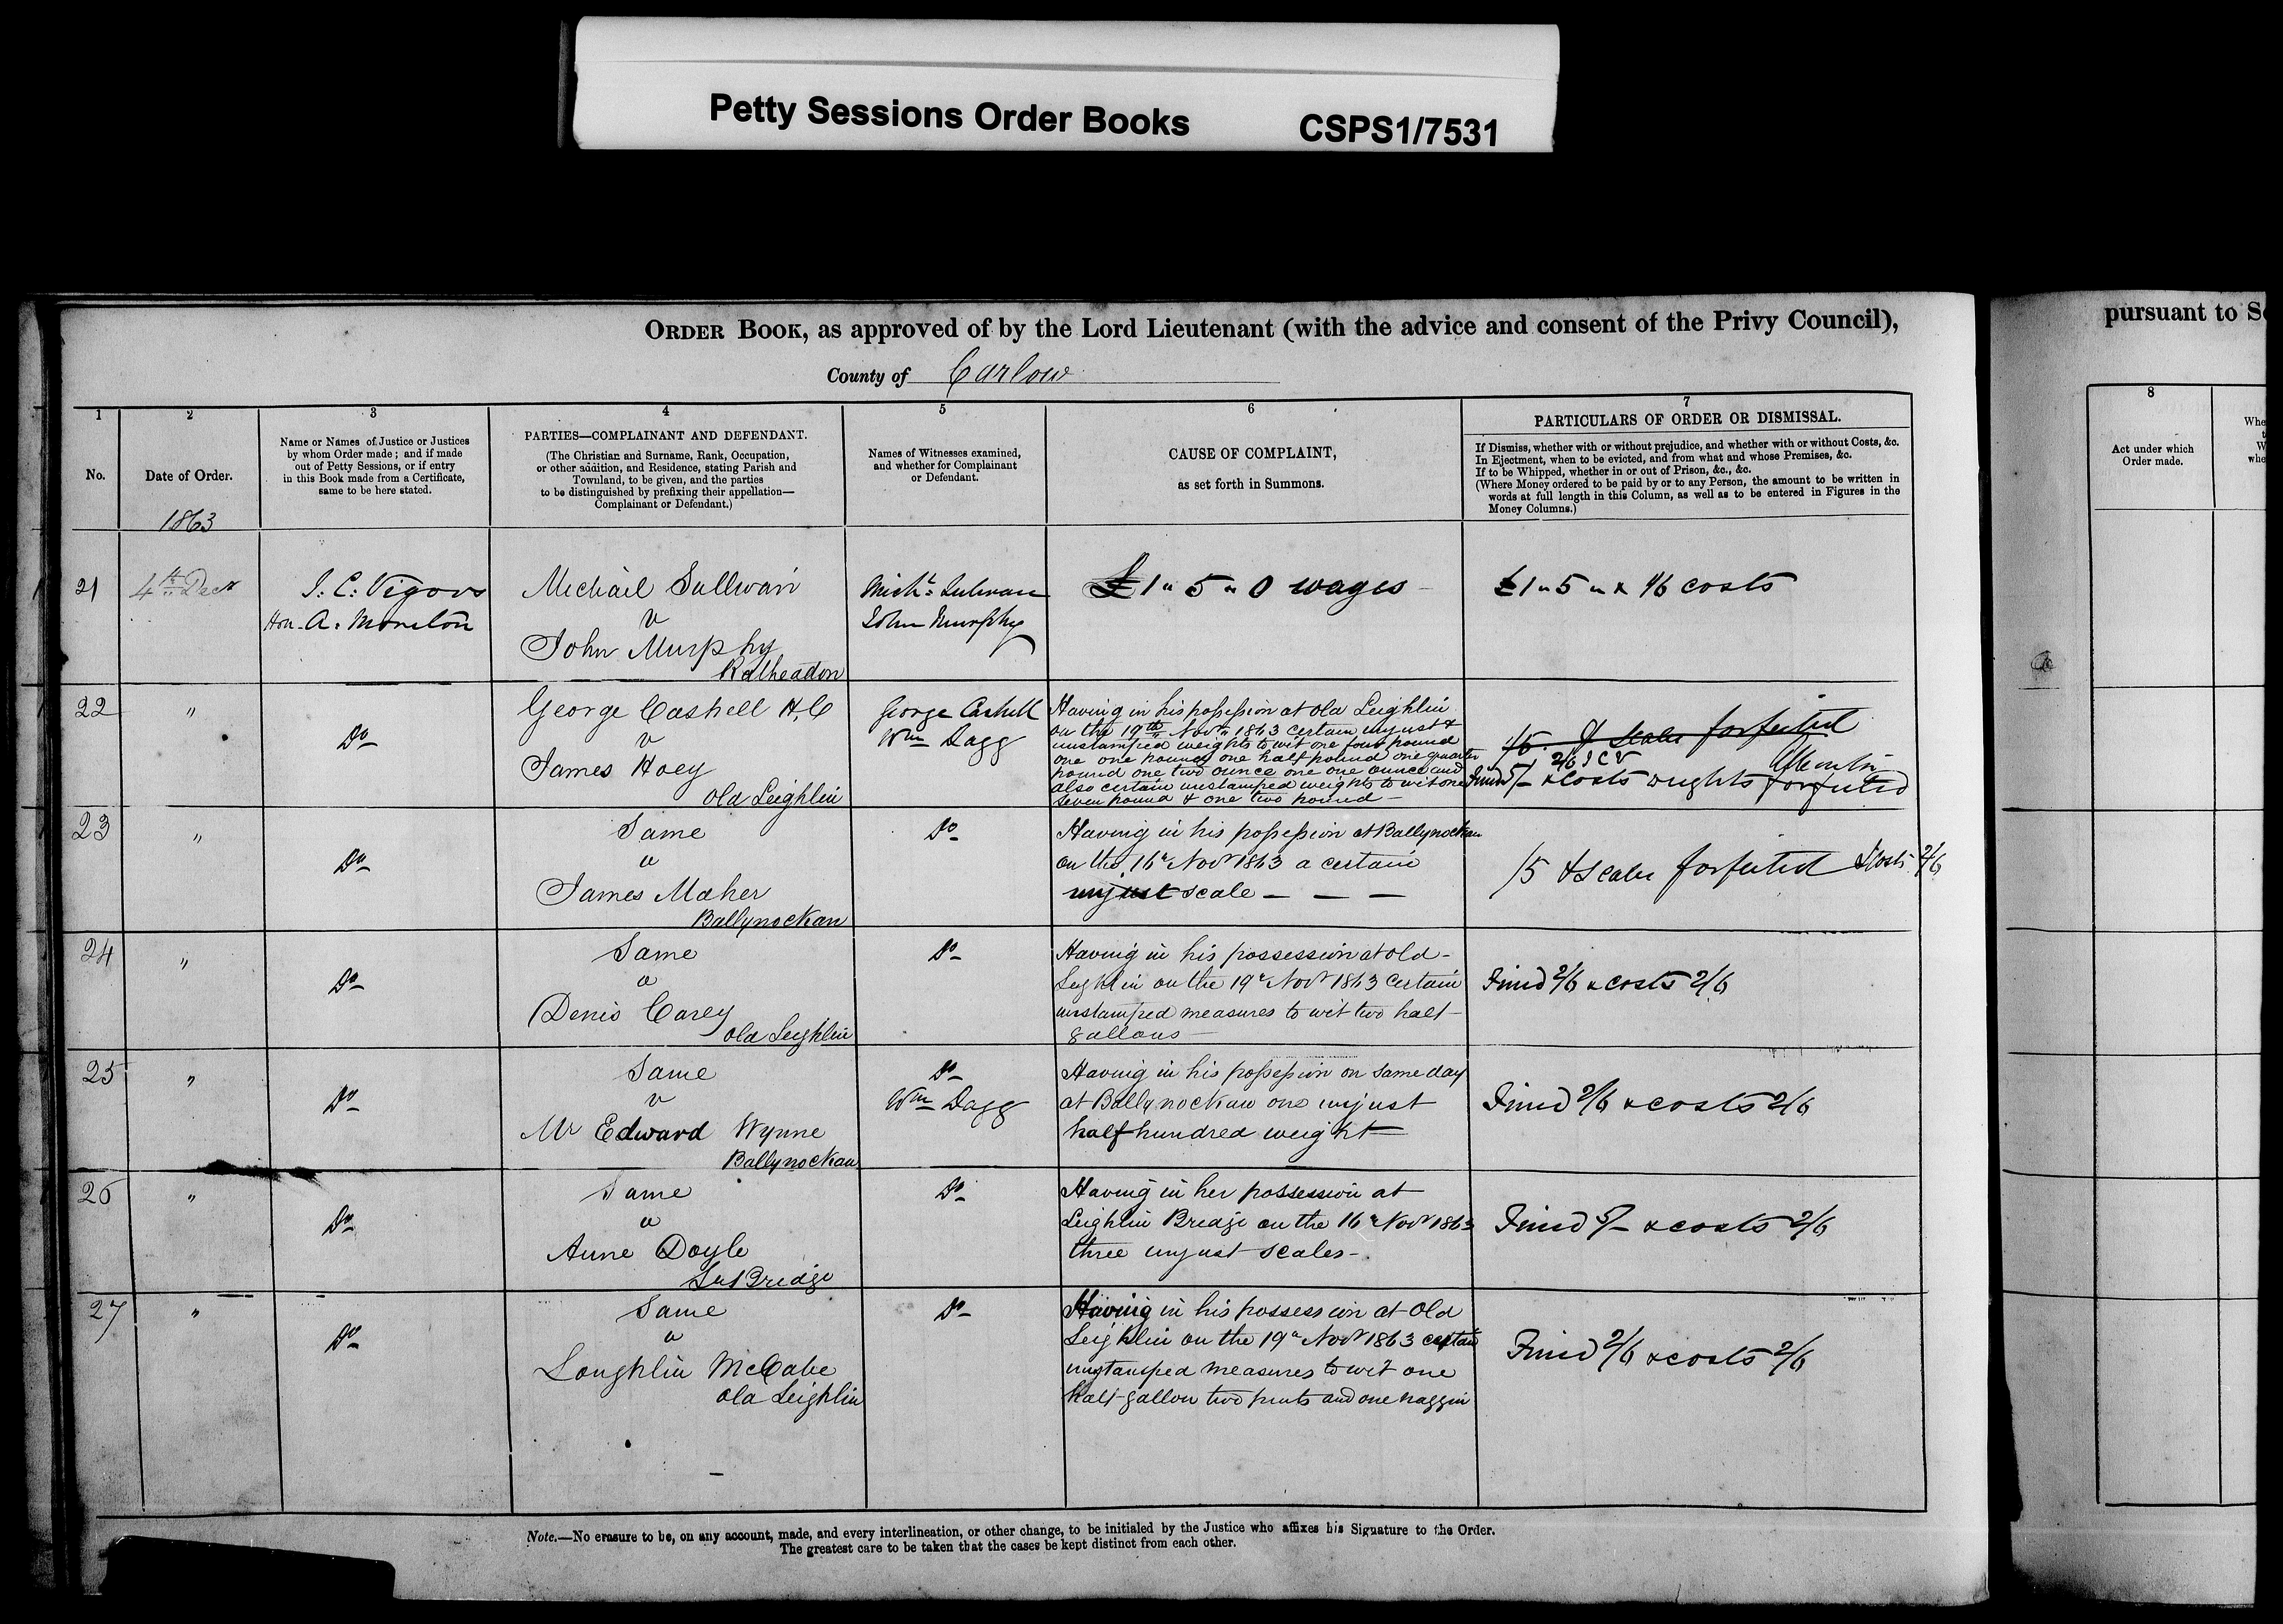 Petty Sessions Order Books CSPS1/7531
ORDER BOOK, as approved of by the Lord Lieutenant (with the advice and consent of the Privy Council),
County of Carlow
1
No.
2
Date of Order.
1863
3
Name or Names of Justice or Justices
by whom Order made; and if made
out of Petty Sessions, or if entry
in this Book made from a Certificate,
same to be here stated.
4
PARTIES—COMPLAINANT AND DEFENDANT.
(The Christian and Surname, Rank, Occupation,
or other addition, and Residence, stating Parish and
Townland, to be given, and the parties
to be distinguished by prefixing their appellation—
Complainant or Defendant.)
5
Names of Witnesses examined,
and whether for Complainant
or Defendant.
6
CAUSE OF COMPLAINT,
as set forth in Summons.
7
PARTICULARS OF ORDER OR DISMISSAL.
If Dismiss, whether with or without prejudice, and whether with or without Costs, &c.
In Ejectment, when to be evicted, and from what and whose Premises, &c.
If to be Whipped, whether in or out of Prison, &c., &c.
(Where Money ordered to be paid by or to any Person, the amount to be written in
words at full length in this Column, as well as to be entered in Figures in the
Money Columns.)
21
4th Decr
J. C. Vigors
Hon. A. Moreton
Michael Sullivan
v
John Murphy
Ratheadon
Michl Sulivan
John Murphy
£1 " 5 " 0 wages
£1 " 5 " & 1/6 costs
22
"
Do
George Cashell H.C
v
James Hoey
Old Leighlin
George Cashell
Wm Dagg
Having in his possession at Old Leighlin
on the 19th Novr 1863 certain unjust &
unstamped weights to wit one four pound
one one pound one half pound one quarter
pound one two ounce one one ounce and
also certain unstamped weights to wit one
seven pound & one two pound
scales forfeited
2/6 J C V
Fined 5/- & costs weights forfeited
23
"
Do
Same
v
James Maher
Ballynockan
Do
Having in his possession at Ballynockan
on the 16th Novr 1863 a certain
unjust scale
/5 & scales forfeited & costs 2/6
24
"
Do
Same
v
Denis Carey
Old Leighlin
Do
Having in his possession at Old
Leighlin on the 19th Novr 1863 certain
unstamped measures to wit two half
gallons
Fined 2/6 & costs 2/6
25
"
Do
Same
v
Mr Edward Wynne
Ballynockan
Do
Wm Dagg
Having in his possession on same day
at Ballynockan one unjust
half hundred weight
Fined 2/6 & costs 2/6
26
"
Do
Same
v
Anne Doyle
Do
Having in her possession at
Leighlin Bridge on the 16th Novr 1863
three unjust scales
Fined 5/- & costs 2/6
27
"
Do
Same
v
Loughlin McCabe
Old Leighlin
Do
Having in his possession at Old
Leighlin on the 19th Novr 1863 certain
unstamped measures to wit one
half gallon two pints and one naggin
Fined 2/6 & costs 2/6
Note.—No erasure to be, on any account, made, and every interlineation, or other change, to be initialed by the Justice who affixes his Signature to the Order.
The greatest care to be taken that the cases be kept distinct from each other.
pursuant to
8
Act under which
Order made.